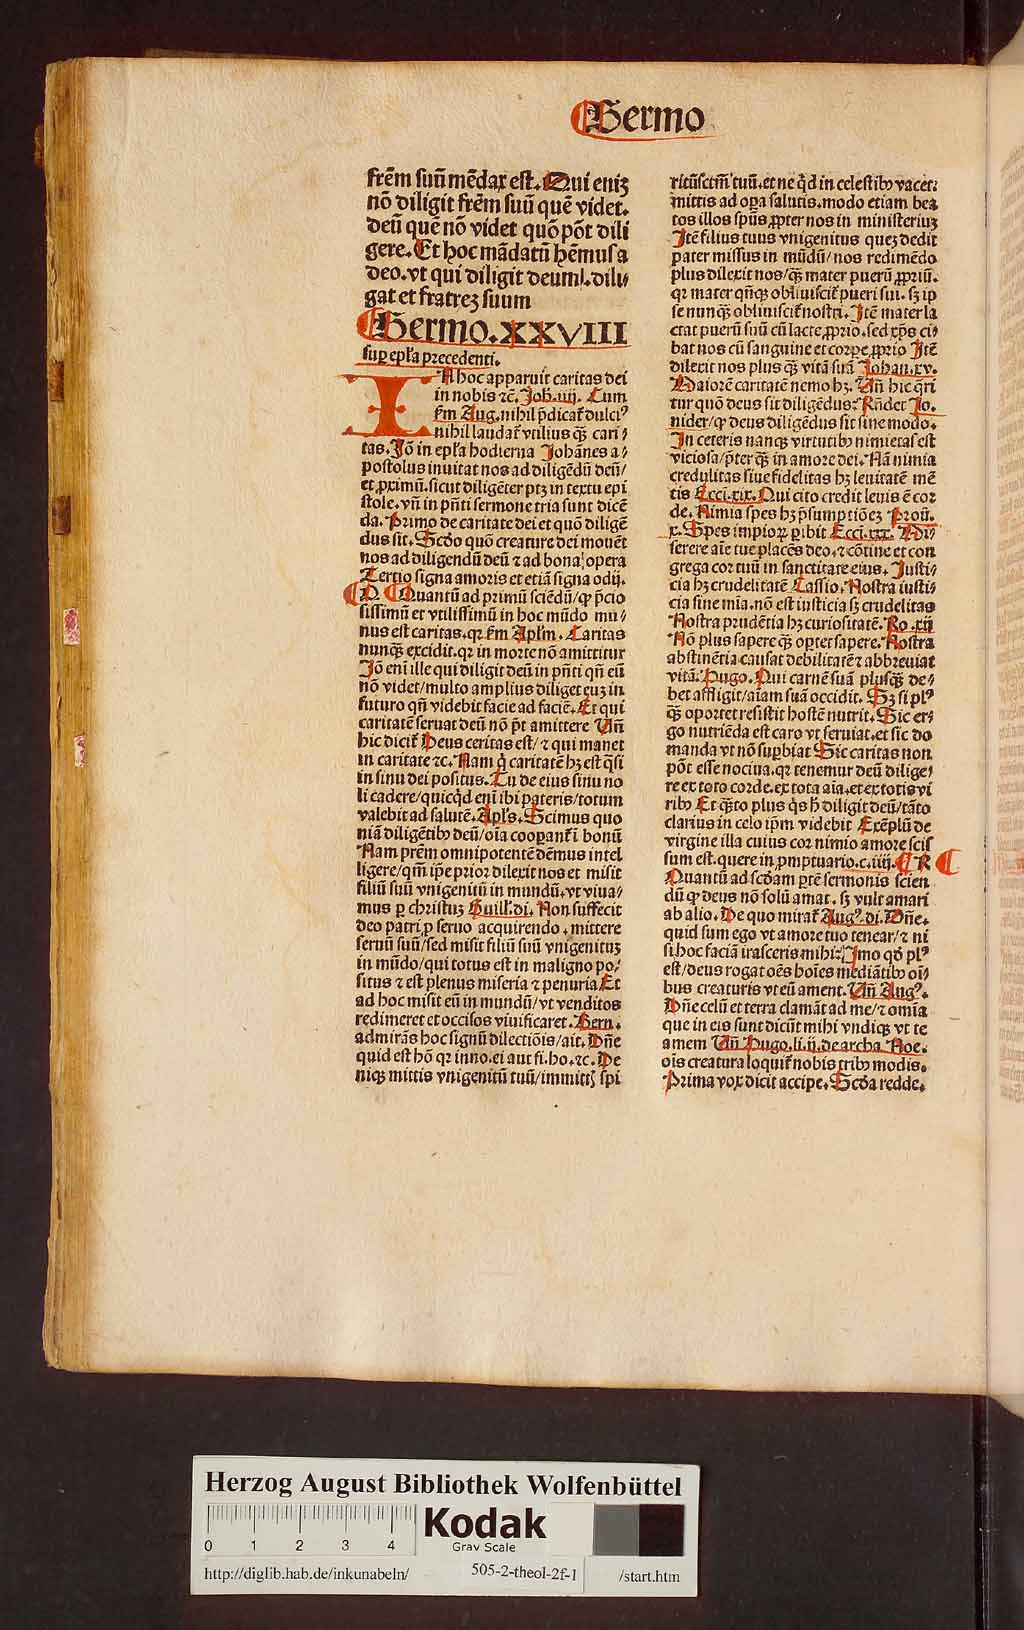 Sermo
frēm suū mēdax est. Qui eniʒ
nō diligit frēm suū quē videt.
deū quē nō videt quō pōt dili
gere. Et hoc mādatū hēmus a
deo. vt qui diligit deum. dili/
gat et fratreʒ suum
Sermo. XXVIII
sup epl'a precedenti.
IN hoc apparuit caritas dei
in nobis ⁊c̄. Joh̄. iiij. Cum
ẜm Aug. nihil p̄dicat᷑ dulci⁹
nihil laudat᷑ vtilius qʒ̄ cari/
tas. Jō in epl'a hodierna Johānes a/
postolus inuitat nos ad diligēdū deū/
et ꝓximū. sicut diligēter ptʒ in textu epi
stole. vn̄ in pn̄ti sermone tria sunt dicē
da. Primo de caritate dei et quō diligē
dus sit. Scd̄o quō creature dei mouēt
nos ad diligendū deū ⁊ ad bona opera
Tertio signa amoris et etiā signa odij.
Quantū ad primū sciēdū/ ꝙ p̄cio
sissimū et vtilissimū in hoc mūdo mu/
nus est caritas. qꝛ ẜm Apl'm. Caritas
nunqʒ̄ excidit. qꝛ in morte nō amittitur
Jō eni ille qui diligit deū in pn̄ti qn̄ eū
nō videt/ multo amplius diliget euʒ in
futuro qn̄ videbit facie ad faciē. Et qui
caritatē seruat deū nō p̄t amittere Un̄
hic dicit᷑ Deus ceritas est/ ⁊ qui manet
in caritate ⁊c̄. Nam q̄ caritatē hʒ est q̄si
in sinu dei positus. Tu de eius sinu no
li cadere/ quicq̇d enī ibi pateris/ totum
valebit ad salutē. Apl's. Scimus quo
niā diligētibꝰ deū/ oīa coopant᷑ ī bonū
Nam prēm omnipotentē dēmus intel
ligere/ qm̄ ip̄e prior dilexit nos et misit
filiū suū vnigenitū in mundū. vt viua/
mus ꝑ christuʒ Guill'. di. Non suffecit
deo patri ꝑ seruo acquirendo. mittere
seruū suū/ sed misit filiū suū vnigenituʒ
in mūdo/ qui totus est in maligno po/
situs ⁊ est plenus miseria ⁊ penuria Et
ad hoc misit eū in mundū/ vt venditos
redimeret et occisos viuificaret. Bern.
admirās hoc signū dilectiōis/ ait. Dn̄e
quid est hō qꝛ inno. ei aut fi. ho. ⁊c. De
niqʒ mittis vnigenitū tuū/ immittʒ spi
ritūsctm̄ tuū. et ne q̇d in celestibꝰ vacet:
mittis ad opa salutis. modo etiam bea
tos illos spūs ꝓpter nos in ministeriuʒ
Jtē filius tuus vnigenitus queʒ dedit
pater missus in mūdū/ nos redimēdo
plus dilexit nos/ qʒ̄ mater puerū ꝓpriū.
qꝛ mater qn̄qʒ obliuiscit᷑ pueri sui. sʒ ip
se nunqʒ̄ obliuiscit᷑ nostri. Jtē mater la
ctat puerū suū cū lacte ꝓprio. sed xp̄s ci/
bat nos cū sanguine et corpe ꝓprio Jtē
dilexit nos plus qʒ̄ vitā suā Johan. xv.
Maiorē caritatē nemo hʒ. Un̄ hic q̄ri
tur quō deus sit diligēdus: Rn̄det Jo.
nider/ ꝙ deus diligēdus sit sine modo.
In ceteris nanqʒ virtutibꝰ nimietas est
viciosa/ p̄ter qʒ̄ in amore dei. Nā nimia
credulitas siue fidelitas hʒ leuitatē mē
tis Ecci. xix. Qui cito credit leuis ē cor
de. Nimia spes hʒ p̄sumptiōeʒ Prou.
x. Spes impioꝝ pibit Ecci. xxx. Mi/
serere aīe tue placēs deo. ⁊ cōtine et con
grega cor tuū in sanctitate eius. Justi/
cia hʒ crudelitatē Cassio. Nostra iusti/
cia sine mīa. nō est iusticia sʒ crudelitas
Nostra prudētia hʒ curiositatē. Ro. xij
Nō plus sapere qʒ̄ optet sapere. Nostra
abstinētia causat debilitatē ⁊ abbreuiat
vitā. Hugo. Qui carnē suā plusqʒ̄ de/
bet affligit/ aīam suā occidit. Sʒ si pl⁹
qʒ̄ oportet resistit hostē nutrit. Sic er/
go nutriēda est caro vt seruiat. et sic do
manda vt nō supbiat Sic caritas non
pōt esse nociua. qꝛ tenemur deū dilige/
re ex toto corde. ex tota aīa. et ex totis vi
ribꝰ Et qʒ̄to plus q̇s h̄ diligit deū/ tāto
clarius in celo ip̄m videbit Exēplū de
virgine illa cuius cor nimio amore scis
sum est. quere in ꝓmptuario. c. iiij. R
Quantū ad scd̄am ptē sermonis scien
dū ꝙ deus nō solū amat. sʒ vult amari
ab alio. De quo mirat᷑ Aug⁹. di. Dn̄e.
quid sum ego vt amore tuo tenear/ ⁊ ni
si hoc faciā irasceris mihi: Jmo qd̄ pl⁹
est/ deus rogat oēs hoīes mediātibꝰ oī/
bus creaturis vt eū ament. Un̄ Aug⁹.
Dn̄e celū et terra clamāt ad me/ ⁊ omīa
que in eis sunt dicūt mihi vndiqʒ vt te
amem Un̄ Hugo. li. ij. de archa Noe.
oīs creatura loquit᷑ nobis tribꝰ modis.
Prima vox dicit accipe. Scd̄a redde.
Herzog August Bibliothek Wolfenbüttel
0 1 2 3 4
Kodak
Gray Scale
http://diglib.hab.de/inkunabeln/ 505-2-theol-2f-1 /start.htm